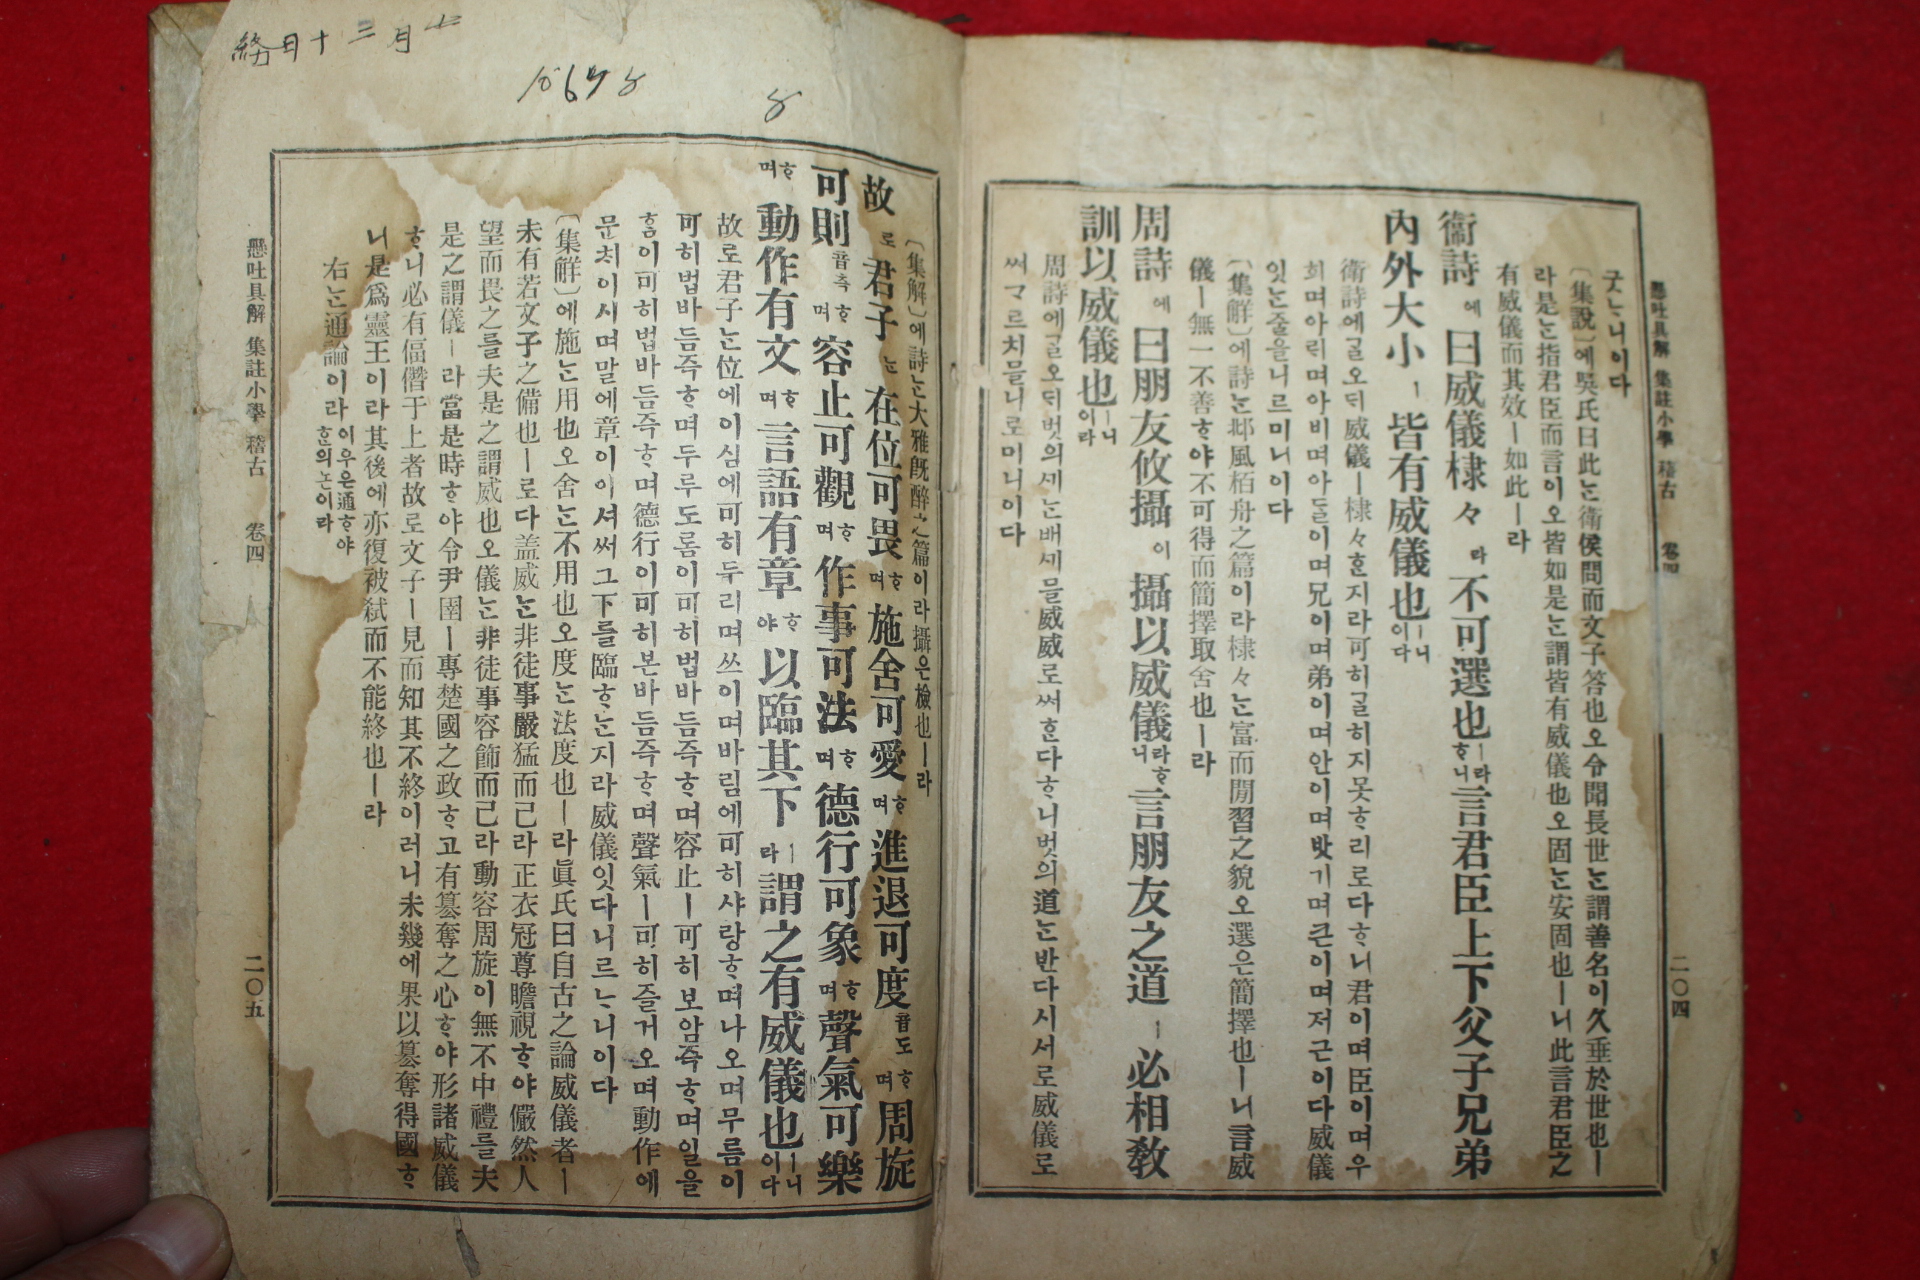 懸吐具解 集註小學 稽古 卷四 二〇四
굿ᄂᆞ니이다
〔集說〕에吳氏曰此ᄂᆞᆫ衛侯問而文子答也오令聞長世ᄂᆞᆫ謂善名이久垂於世也ㅣ
라是ᄂᆞᆫ指君臣而言이오皆如是ᄂᆞᆫ謂皆有威儀也오固ᄂᆞᆫ安固也ㅣ니此言君臣之
有威儀而其效ㅣ如此ㅣ라
衛詩에曰威儀棣々라不可選也ㅣ라ᄒᆞ니言君臣上下父子兄弟
內外大小ㅣ皆有威儀也ㅣ니이다
衛詩에ᄀᆞᆯ오ᄃᆡ威儀ㅣ棣々ᄒᆞᆫ지라可히ᄀᆞᆯ히지못ᄒᆞ리로다ᄒᆞ니君이며臣이며우
희며아ᄅᆡ며아비며아ᄃᆞᆯ이며兄이며弟이며안이며밧기며큰이며저근이다威儀
잇ᄂᆞᆫ줄을니르미니이다
〔集解〕에詩ᄂᆞᆫ邶風栢舟之篇이라棣々ᄂᆞᆫ富而閒習之貌오選은簡擇也ㅣ니言威
儀ㅣ無一不善ᄒᆞ야不可得而簡擇取舍也ㅣ라
周詩에曰朋友攸攝이攝以威儀라ᄒᆞ니言朋友之道ㅣ必相敎
訓以威儀也ㅣ니이라
周詩에ᄀᆞᆯ오ᄃᆡ벗의ᄭᅦᄂᆞᆫ배ᄭᅦ믈威威로써ᄒᆞᆫ다ᄒᆞ니벗의道ᄂᆞᆫ반다시서로威儀로
써ᄀᆞ르치믈니로미니이다
〔集解〕에詩ᄂᆞᆫ大雅旣醉之篇이라攝은檢也ㅣ라
故로君子ᄂᆞᆫ在位可畏ᄒᆞ며施舍可愛ᄒᆞ며進退可度音도ᄒᆞ며周旋
可則音측ᄒᆞ며容止可觀ᄒᆞ며作事可法ᄒᆞ며德行可象ᄒᆞ며聲氣可樂
ᄒᆞ며動作有文ᄒᆞ며言語有章ᄒᆞ야以臨其下ㅣ라謂之有威儀也ㅣ니이다
故로君子ᄂᆞᆫ位에이심에可히두리며쓰이며바림에可히샤랑ᄒᆞ며나오며무름이
可히법바듬즉ᄒᆞ며두루도롬이可히법바듬즉ᄒᆞ며容止ㅣ可히보암즉ᄒᆞ며일을
홈이可히법바듬즉ᄒᆞ며德行이可히본바듬즉ᄒᆞ며聲氣ㅣ可히즐거오며動作에
문치이시며말에章이이셔써그下를臨ᄒᆞᄂᆞᆫ지라威儀잇다니르ᄂᆞ니이다
〔集解〕에施ᄂᆞᆫ用也오舍ᄂᆞᆫ不用也오度ᄂᆞᆫ法度也ㅣ라眞氏曰自古之論威儀者ㅣ
未有若文子之備也ㅣ로다盖威ᄂᆞᆫ非徒事嚴猛而已라正衣冠尊瞻視ᄒᆞ야儼然人
望而畏之를夫是之謂威也오儀ᄂᆞᆫ非徒事容節而已라動容周旋이無不中禮를夫
是之謂儀ㅣ라當是時ᄒᆞ야令尹圍ㅣ專楚國之政ᄒᆞ고有簒奪之心ᄒᆞ야形諸威儀
ᄒᆞ니必有偪僭于上者故로文子ㅣ見而知其不終이러니未幾에果以簒奪得國ᄒᆞ
니是爲靈王이라其後에亦復被弑而不能終也ㅣ라
右ᄂᆞᆫ通論이라이우은通ᄒᆞ야ᄒᆞᆫ의논이라
懸吐具解 集註小學 稽古 卷四 二〇五